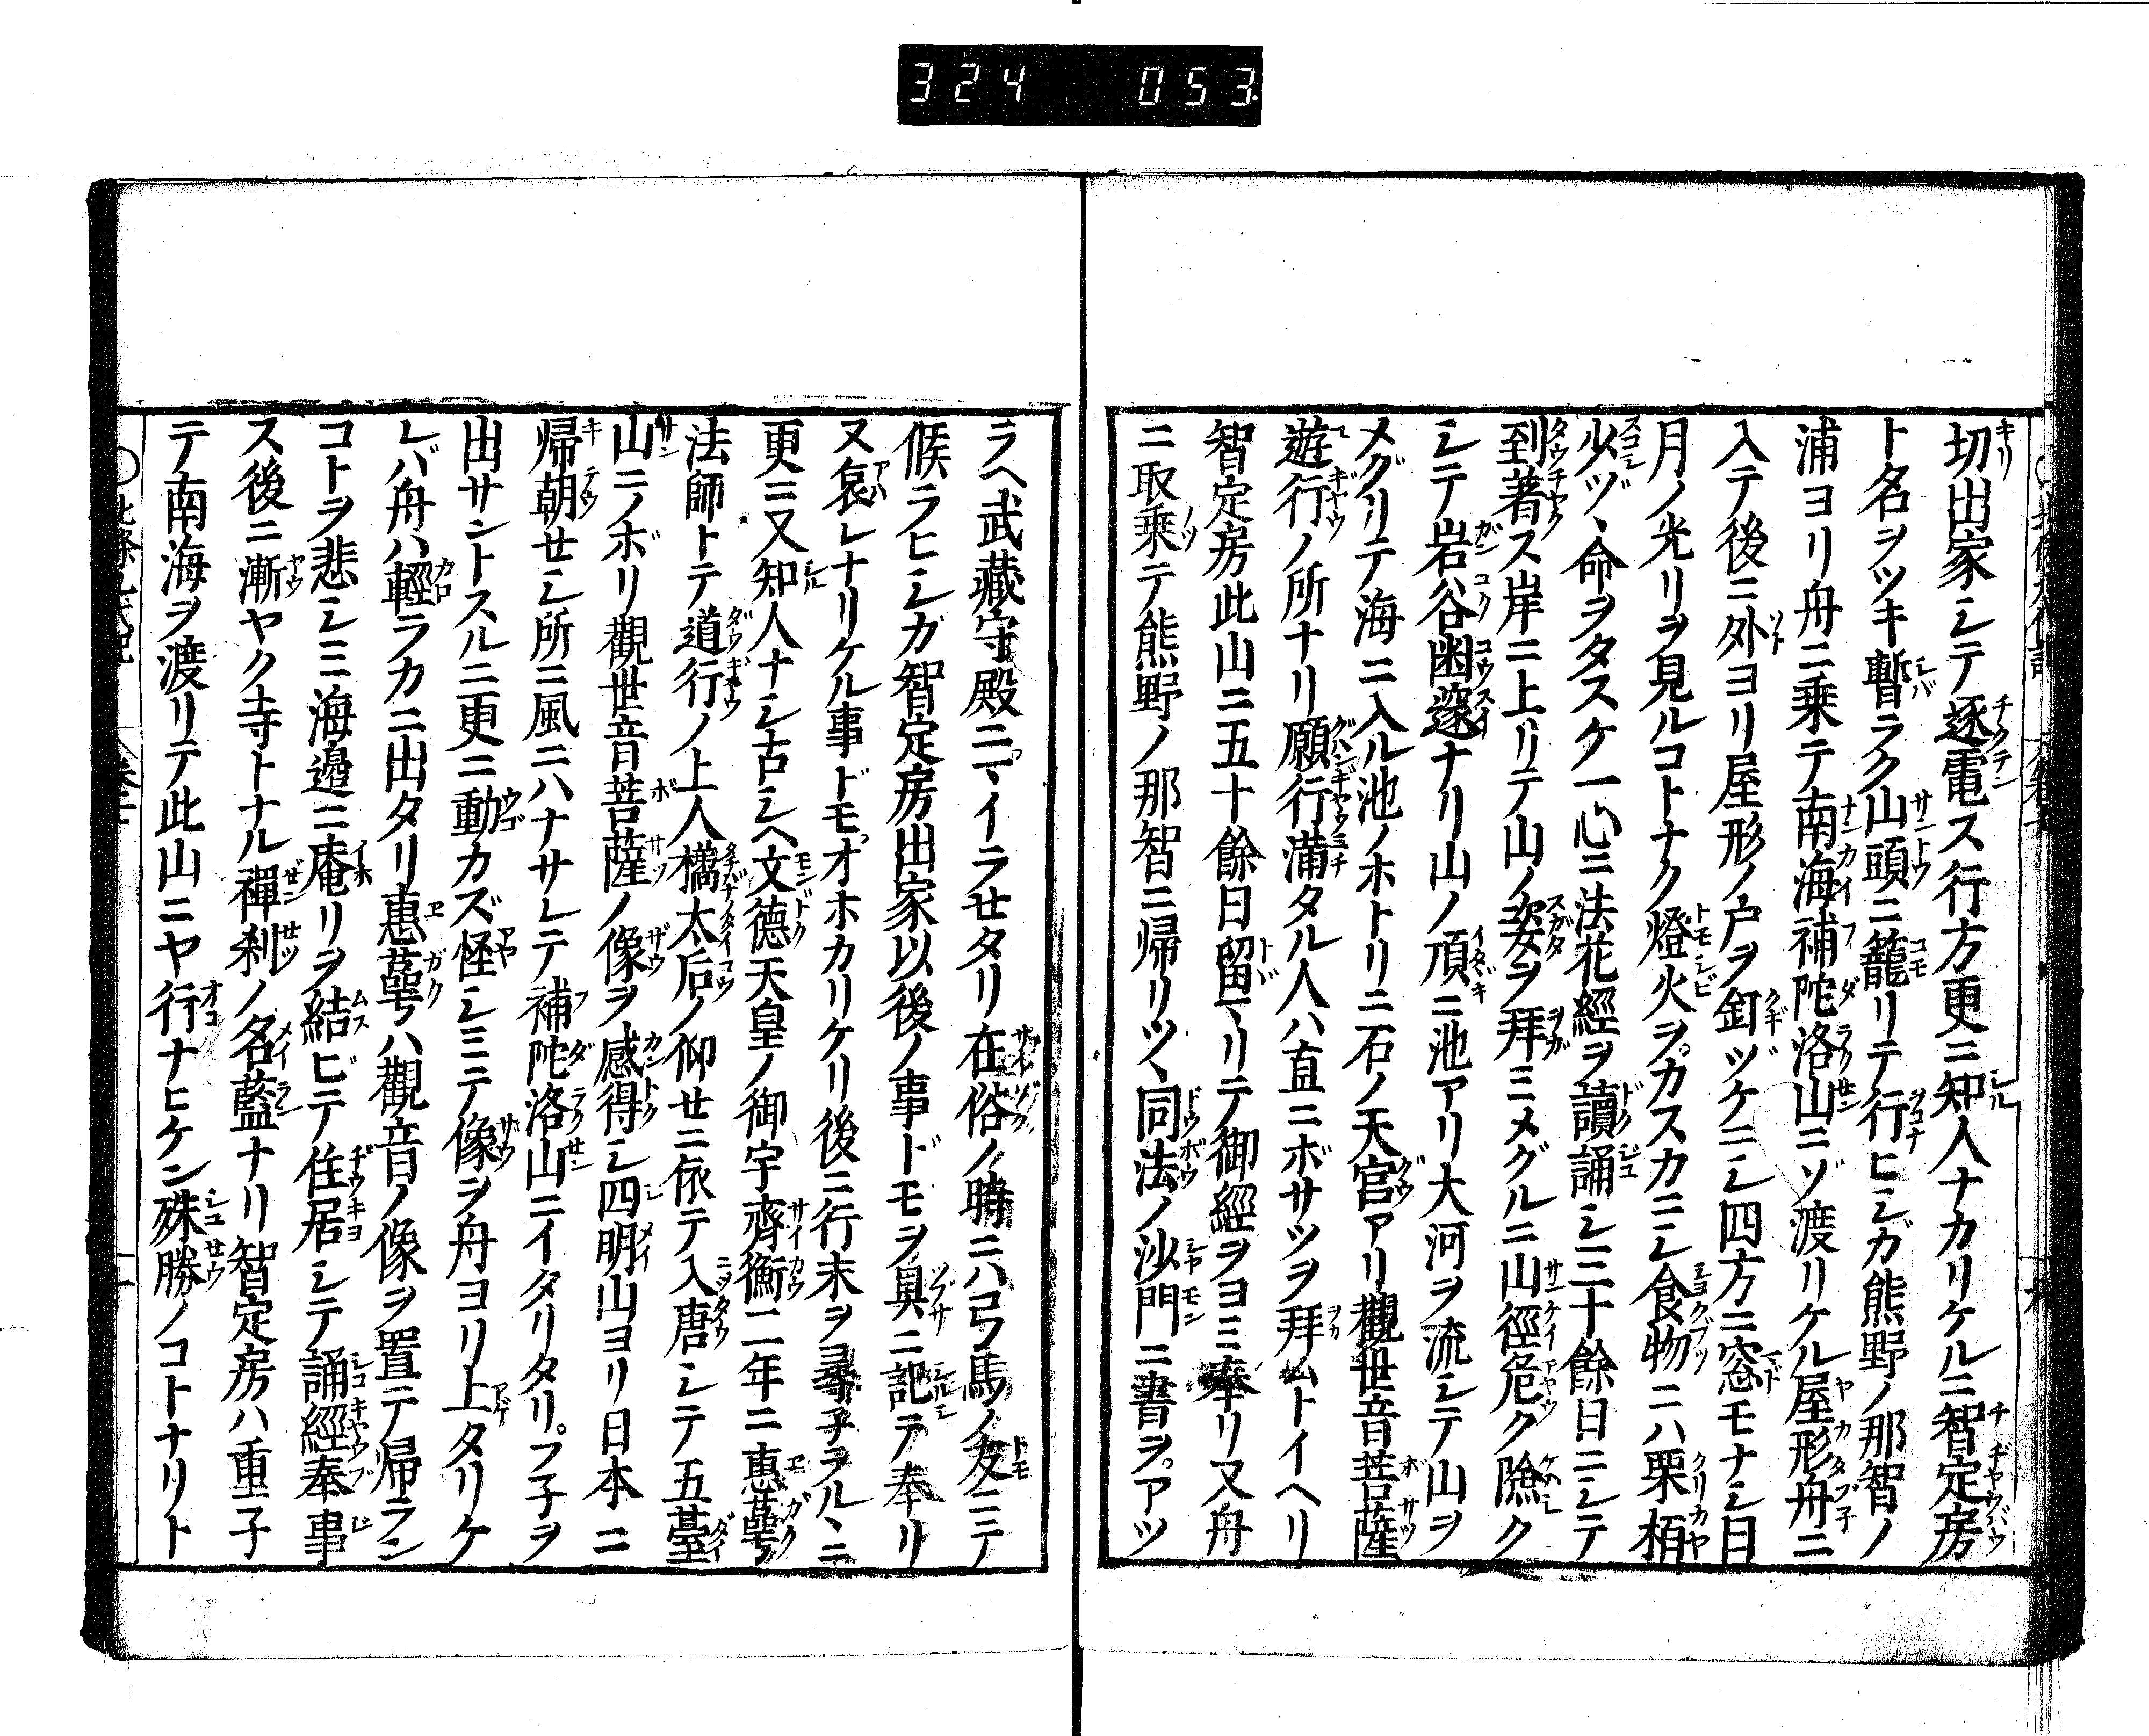 324 053
切出家シテ逐電ス行方更ニ知人ナカリケルニ智定房
ト名ヲツキ暫ラク山頭ニ籠リテ行ヒシガ熊野ノ那智ノ
浦ヨリ舟ニ乗テ南海補陀洛山ニゾ渡リケル屋形舟ニ
入テ後ニ外ヨリ屋形ノ戸ヲ釘ヅケニシ四方ニ窓モナシ日
月ノ光リヲ見ルコトナク燈火ヲカスカニシ食物ニハ栗栢
少ヅヽ命ヲタスケ一心ニ法花經ヲ讀誦シ三十餘日ニシテ
到著ス岸ニ上リテ山ノ姿ヲ拜ミメグルニ山徑危ク險ク
シテ岩谷幽邃ナリ山ノ頂ニ池アリ大河ヲ流シテ山ヲ
メグリテ海ニ入ル池ノホトリニ石ノ天宮アリ觀世音菩薩
遊行ノ所ナリ願行滿タル人ハ直ニボサツヲ拜ムトイヘリ
智定房此山ニ五十餘日留マリテ御經ヲヨミ奉リ又舟
ニ取乗テ熊野ノ那智ニ帰リツヽ同法ノ沙門ニ書ヲアツ
ラヘ武藏守殿ニマイラセタリ在俗ノ時ニハ弓馬ノ友ニテ
候ラヒシガ智定房出家以後ノ事ドモヲ具ニ記テ奉リ
又哀レナリケル事ドモオホカリケリ後ニ行末ヲ尋子ラルヽニ
更ニ又知人ナシ古シヘ文德天皇ノ御宇齊衡二年ニ惠萼
法師トテ道行ノ上人橘太后ノ仰セニ依テ入唐シテ五臺
山ニノボリ觀世音菩薩ノ像ヲ感得シ四明山ヨリ日本ニ
帰朝セシ所ニ風ニハナサレテ補陀洛山ニイタリタリフ子ヲ
出サントスルニ更ニ動カズ怪シミテ像ヲ舟ヨリ上タリケ
レバ舟ハ輕ラカニ出タリ惠萼ハ觀音ノ像ヲ置テ帰ラン
コトヲ悲シミ海邉ニ庵リヲ結ビテ住居シテ誦經奉事
ス後ニ漸ヤク寺トナル禪刹ノ名藍ナリ智定房ハ重子
テ南海ヲ渡リテ此山ニヤ行ナヒケン殊勝ノコトナリト